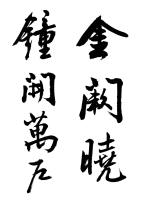 金闕曉
鐘開萬户